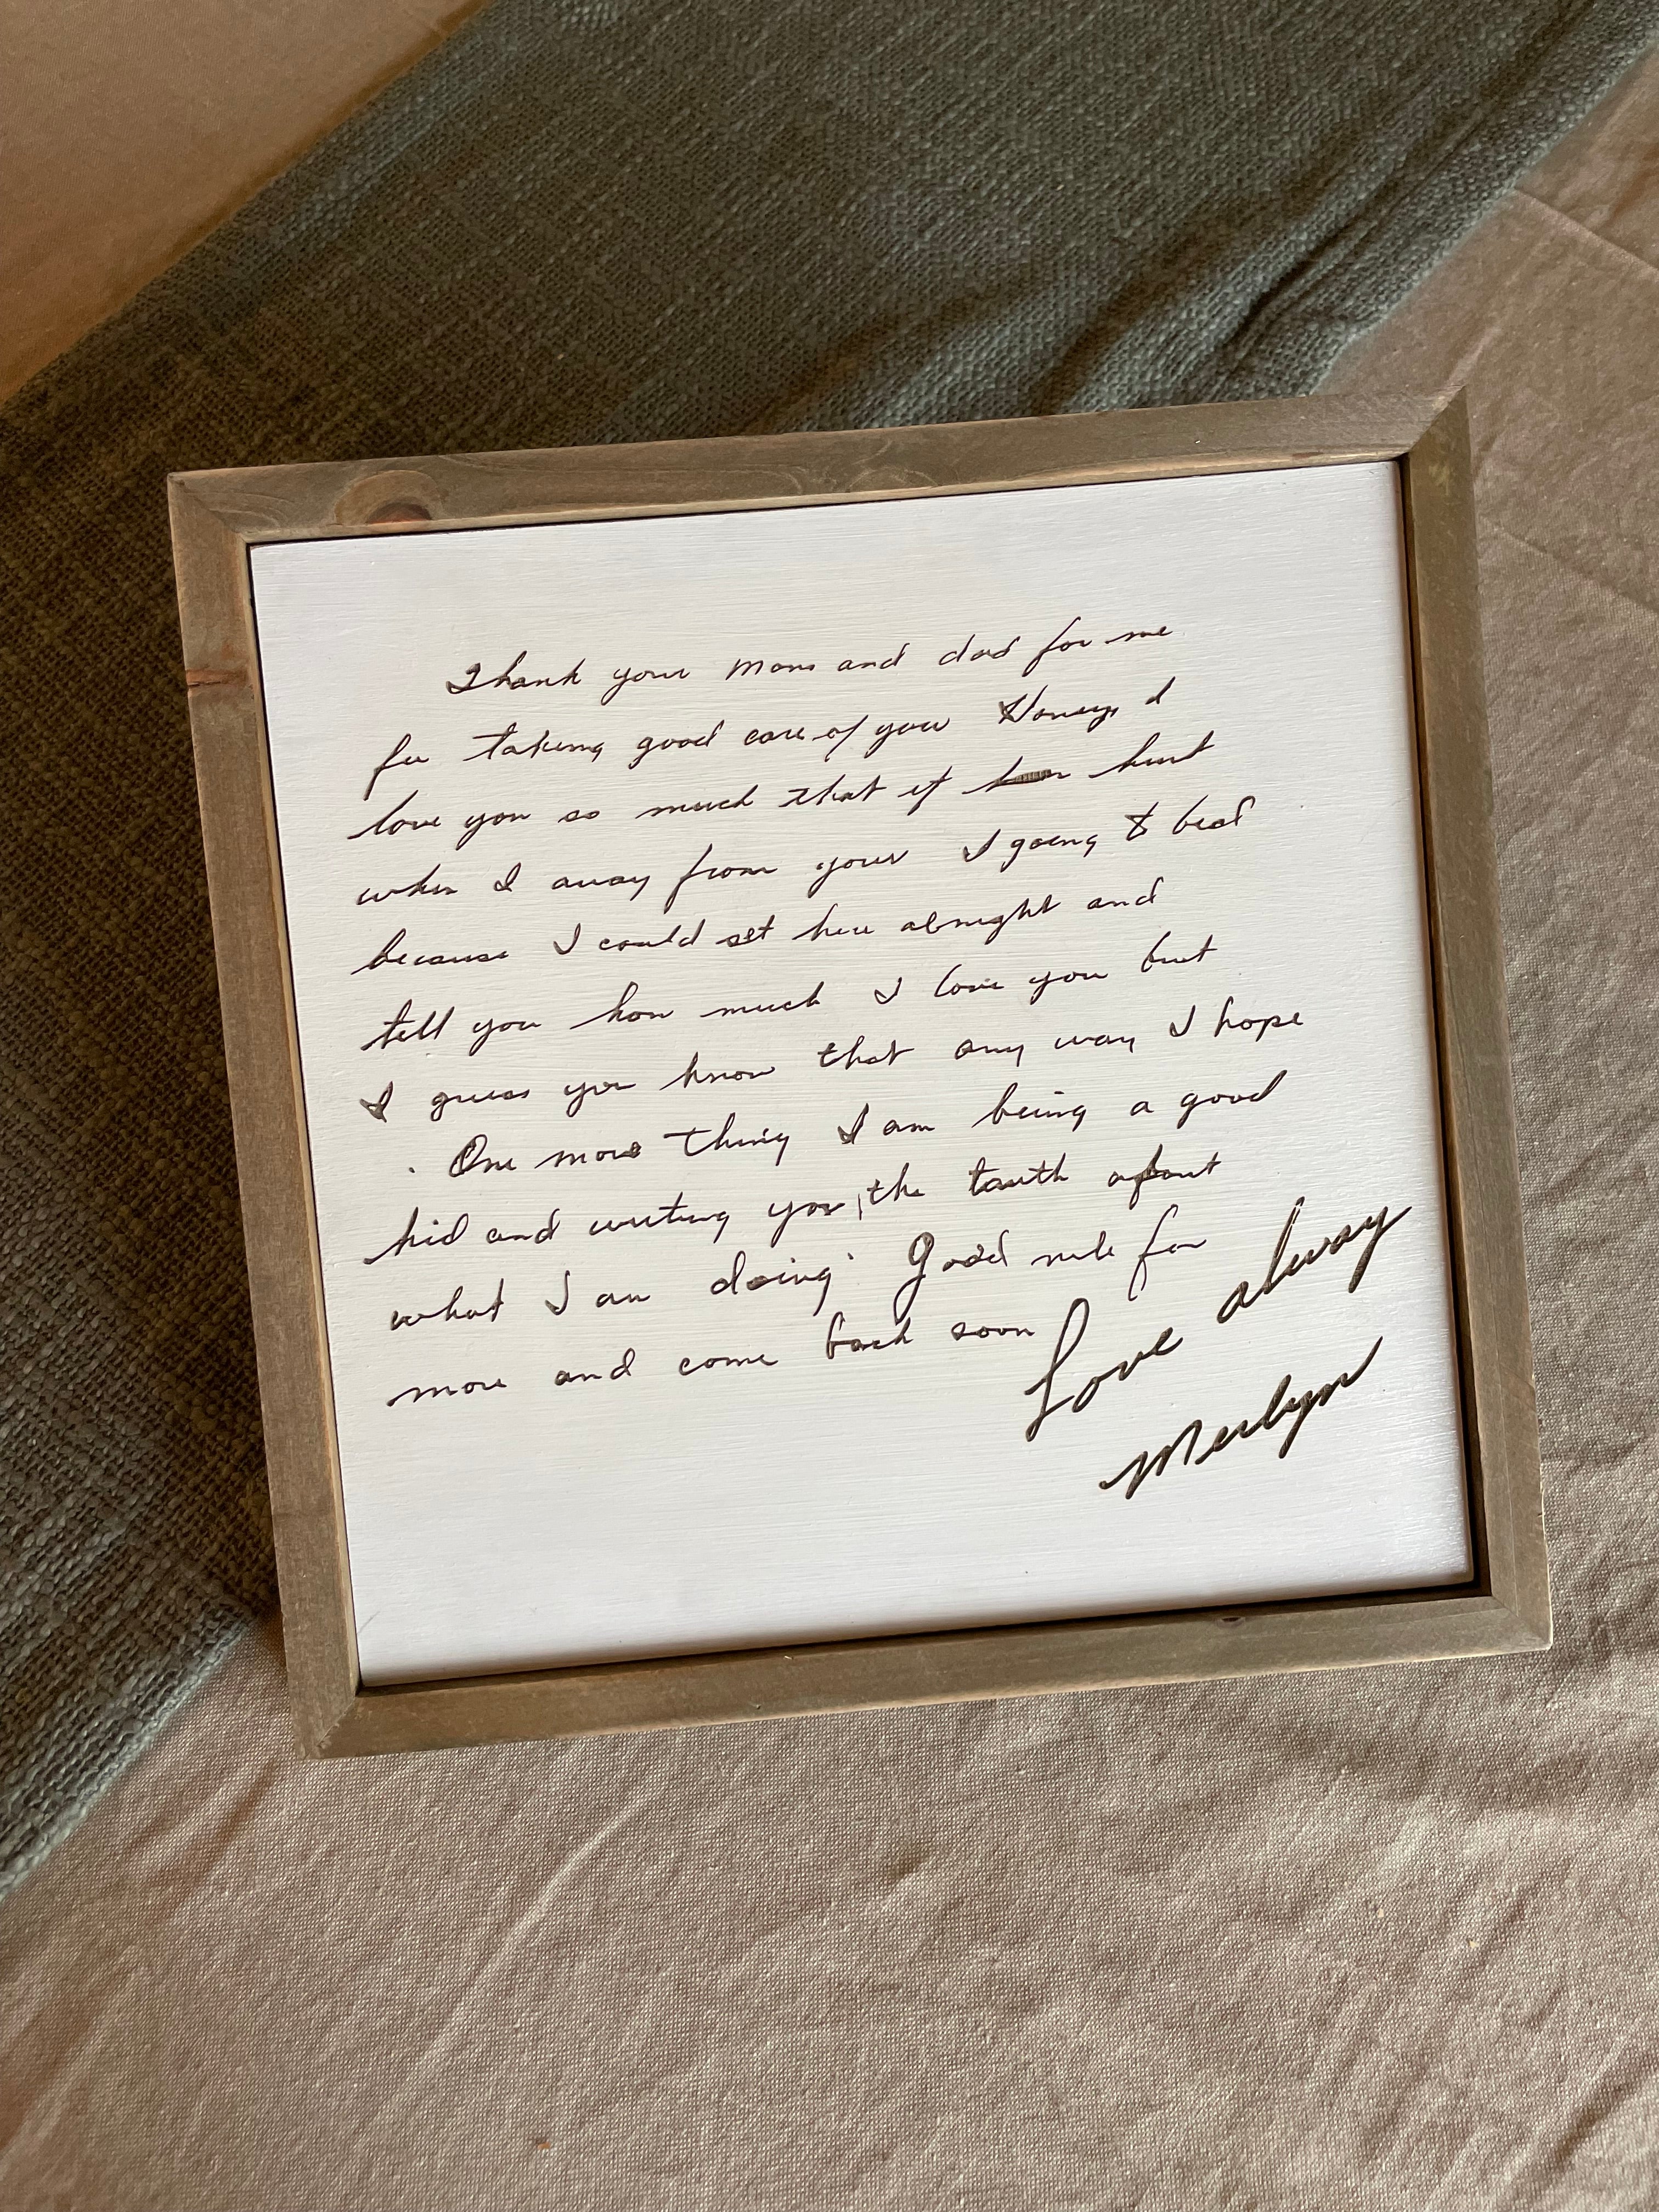 Thank your Mom and dad for me
for taking good care of you Honey, I
love you so much that it hurt
when I away from your I going to bed
because I could set here alnight and
tell you how much I love you but
I guess you know that any way I hope
. One more thing I am being a good
kid and writing you, the truth about
what I am doing. Good nite for
more and come back soon
Love alway
Merlyn